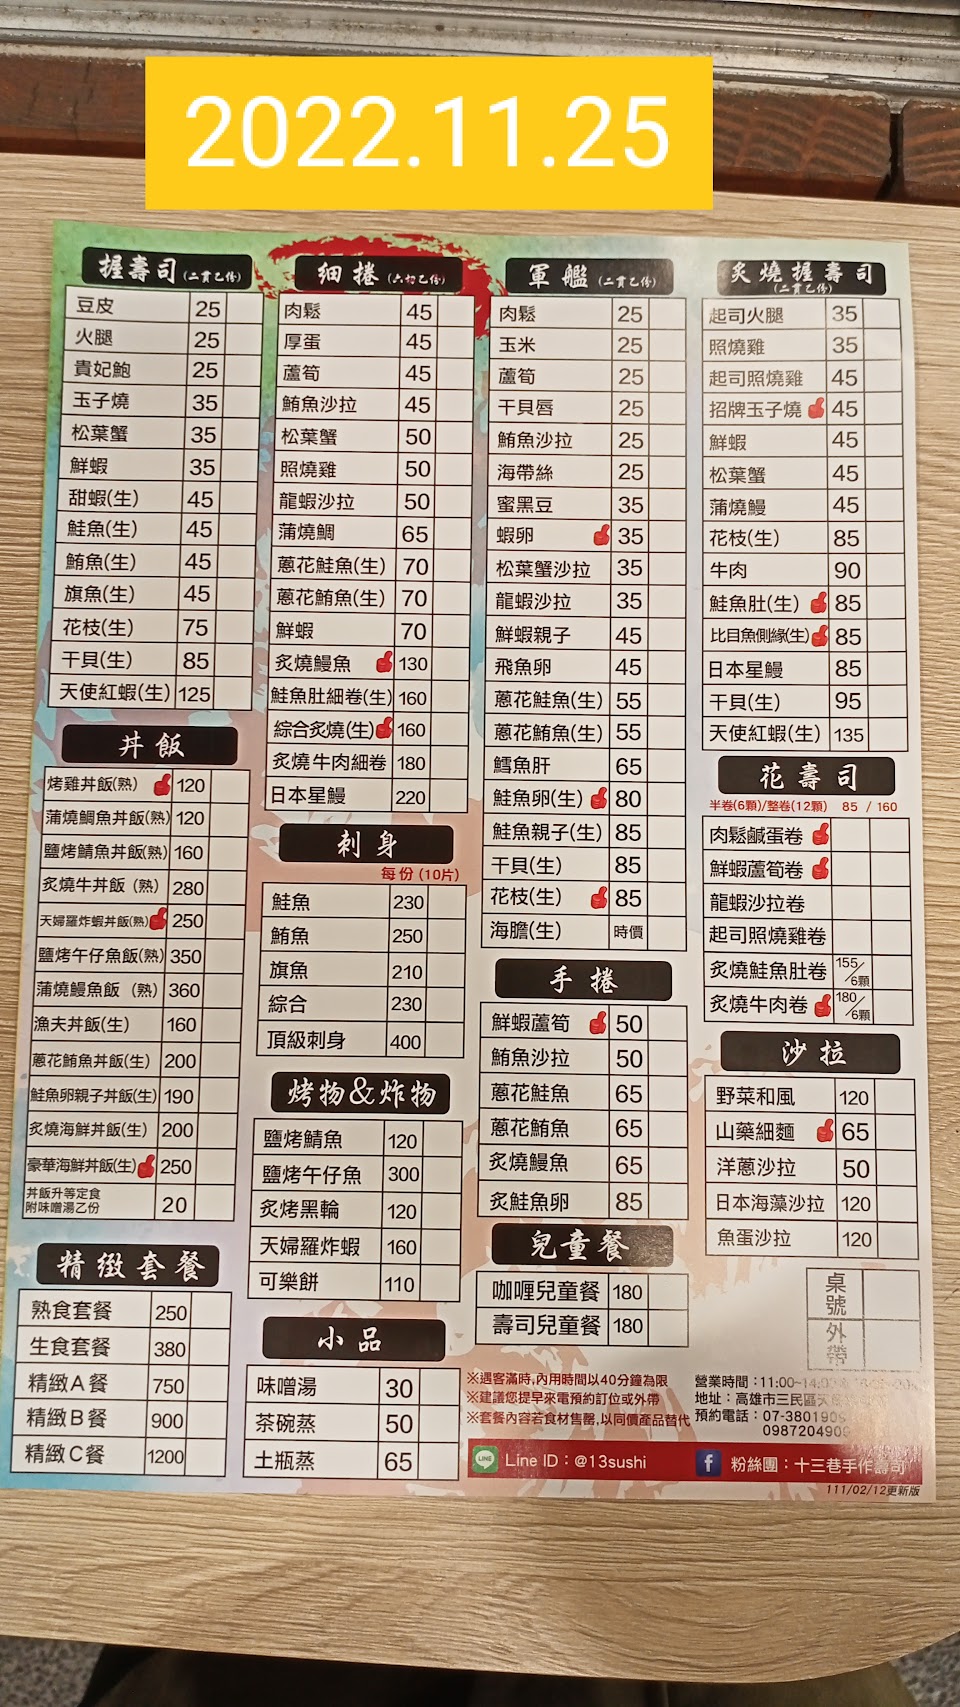 2022.11.25
握壽司(二貫乙份)
豆皮 25
火腿 25
貴妃鮑 25
玉子燒 35
松葉蟹 35
鮮蝦 35
甜蝦(生) 45
鮭魚(生) 45
鮪魚(生) 45
旗魚(生) 45
花枝(生) 75
干貝(生) 85
天使紅蝦(生) 125
丼飯
烤雞丼飯(熟) 120
蒲燒鯛魚丼飯(熟) 120
鹽烤鯖魚丼飯(熟) 160
炙燒牛丼飯(熟) 280
天婦羅炸蝦丼飯(熟) 250
鹽烤午仔魚飯(熟) 350
蒲燒鰻魚飯(熟) 360
漁夫丼飯(生) 160
蔥花鮪魚丼飯(生) 200
鮭魚卵親子丼飯(生) 190
炙燒海鮮丼飯(生) 200
豪華海鮮丼飯(生) 250
丼飯升等定食
附味噌湯乙份 20
精緻套餐
熟食套餐 250
生食套餐 380
精緻A餐 750
精緻B餐 900
精緻C餐 1200
細捲(六切乙份)
肉鬆 45
厚蛋 45
蘆筍 45
鮪魚沙拉 45
松葉蟹 50
照燒雞 50
龍蝦沙拉 50
蒲燒鯛 65
蔥花鮭魚(生) 70
蔥花鮪魚(生) 70
鮮蝦 70
炙燒鰻魚 130
鮭魚肚細卷(生) 160
綜合炙燒(生) 160
炙燒牛肉細卷 180
日本星鰻 220
刺身
每份(10片)
鮭魚 230
鮪魚 250
旗魚 210
綜合 230
頂級刺身 400
烤物&炸物
鹽烤鯖魚 120
鹽烤午仔魚 300
炙烤黑輪 120
天婦羅炸蝦 160
可樂餅 110
小品
味噌湯 30
茶碗蒸 50
土瓶蒸 65
軍艦(二貫乙份)
肉鬆 25
玉米 25
蘆筍 25
干貝唇 25
鮪魚沙拉 25
海帶絲 25
蜜黑豆 35
蝦卵 35
松葉蟹沙拉 35
龍蝦沙拉 35
鮮蝦親子 45
飛魚卵 45
蔥花鮭魚(生) 55
蔥花鮪魚(生) 55
鱈魚肝 65
鮭魚卵(生) 80
鮭魚親子(生) 85
干貝(生) 85
花枝(生) 85
海膽(生) 時價
手捲
鮮蝦蘆筍 50
鮪魚沙拉 50
蔥花鮭魚 65
蔥花鮪魚 65
炙燒鰻魚 65
炙鮭魚卵 85
兒童餐
咖喱兒童餐 180
壽司兒童餐 180
炙燒握壽司
(二貫乙份)
起司火腿 35
照燒雞 35
起司照燒雞 45
招牌玉子燒 45
鮮蝦 45
松葉蟹 45
蒲燒鰻 45
花枝(生) 85
牛肉 90
鮭魚肚(生) 85
比目魚側緣(生) 85
日本星鰻 85
干貝(生) 95
天使紅蝦(生) 135
花壽司
半卷(6顆)/整卷(12顆) 85 / 160
肉鬆鹹蛋卷
鮮蝦蘆筍卷
龍蝦沙拉卷
起司照燒雞卷
炙燒鮭魚肚卷 155/6顆
炙燒牛肉卷 180/6顆
沙拉
野菜和風 120
山藥細麵 65
洋蔥沙拉 50
日本海藻沙拉 120
魚蛋沙拉 120
桌號
外帶
※遇客滿時,內用時間以40分鐘為限
※建議您提早來電預約訂位或外帶
※套餐內容若食材售罄,以同價產品替代
營業時間:11:00~14:
地址:高雄市三民區
預約電話:07-380190
098720490
LINE
Line ID:@13sushi
f 粉絲團:十三巷手作壽司
111/02/12更新版